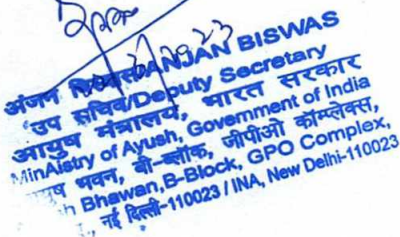 अंजन ANJAN BISWAS
उप सचिव/Deputy Secretary
आयुष मंत्रालय, भारत सरकार
MinAistry of Ayush, Government of India
भवन, बी-ब्लॉक, जीपीओ कॉम्प्लेक्स,
Bhawan,B-Block, GPO Complex,
नई दिल्ली-110023 / INA, New Delhi-110023